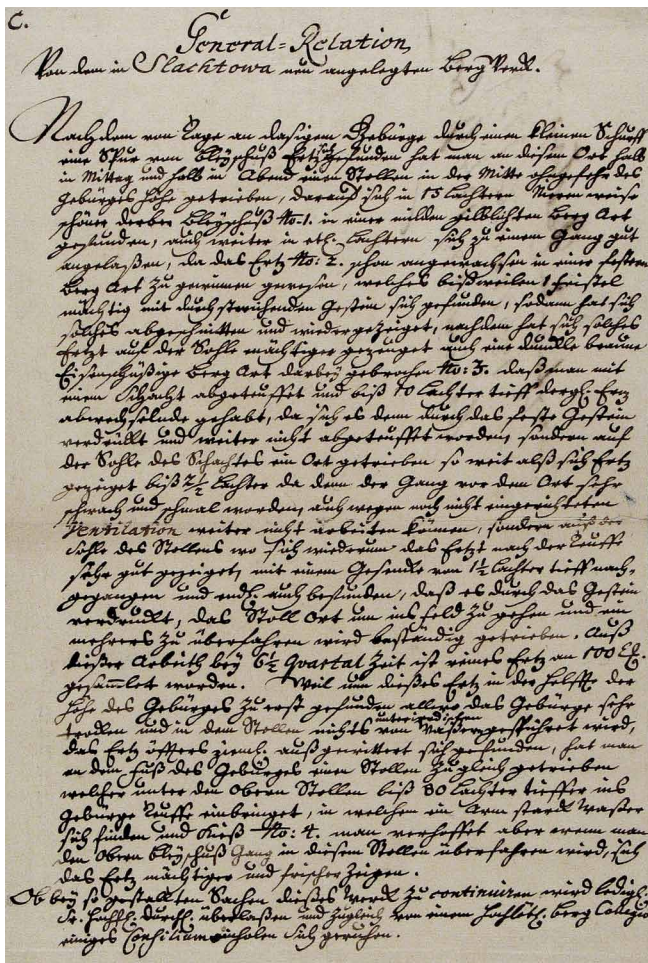 C.
General-Relation
Von dem in Slachtowa neu angelegten Berg Werk.
Nachdem von Tage an dasigem Gebürge durch einen kleinen Schurff
eine Spur von Bleyschuß Ertz sich gefunden hat man an diesem Ort halb
in Mittag und halb in Abend einen Stollen in der Mitte ohngefehr des
Gebürges Höhe getrieben, darauf sich in 15 Lachtern Nieren weise
schöner derber Bleyschuß No: 1. in einer milden gilblichten Berg Art
gefunden, auch weiter in etl. Lachtern sich zu einem Gang gut
angelaßen, da das Ertz No: 2. schon angewachsen in einer festern
Berg Art zu gewinnen gewesen, welches bißweilen 1 Fristel
mächtig mit durchstreichenden Gestein sich gefunden, sodann hat sich
solches abgeschnitten und wieder gezeuget, nachdem hat sich solches
Ertzt auf der Sohle mächtiger gezeuget auch eine dunckle braune
Eisenschüßige Berg Art darbey gebrochen No: 3. daß man mit
einem Schacht abgeteuffet und biß 10 Lachter tieff dergl. Ertz
abwechselnde gehabt, da sich es denn durch das feste Gestein
verdrückt und weiter nicht abgeteuffet worden, sondern auf
der Sohle des Schachtes ein Ort getrieben so weit alß sich Ertz
gezeiget biß 2½ Lachter da denn der Gang vor dem Ort sehr
schwach und schmal worden, auch wegen noch nicht eingerichteten
Ventilation weiter nicht arbeiten können, sondern auf der
Sohle des Stollens wo sich wiederum das Ertzt nach der Teuffe
sehr gut gezeiget, mit einem Gesencke von 1½ Lachter tieff nach-
gegangen und endl. auch befunden, daß es durch das Gestein
verdruckt, das Stoll Ort um ins Feld zu gehen und ein
mehrers zu überfahren wird beständig getrieben. Auß
dießer Arbeith bey 6½ Quartal Zeit ist reines Ertz an 100
gesammlet worden. Weil nun dießes Ertz in der Helffte der
Höhe des Gebürges zuerst gefunden allwo das Gebürge sehr
trocken und in dem Stollen nichts von unterirdischen Waßer gespühret wird,
das Ertz öffters ziemb. außgewittert sich gefunden, hat man
an dem Fuß des Gebürges einen Stollen zugleich getrieben
welcher unter den Obern Stollen biß 80 Lachter tieffer ins
Gebürge Teuffe einbringet, in welchen ein Arm starck Waßer
sich finden und Kieß No: 4. man verhoffet aber wenn man
den Obern Bleyschuß Gang in diesem Stollen überfahren wird, sich
das Ertz mächtiger und frischer zeigen.
Ob bey so gestallten Sachen dießes Werck zu continuiren wird ledigl.
Sr. Hochfl. Durchl. überlaßen und zugleich von einem Hochlöbl. Berg Collegio
einiges Consilium einholen sich geruhen.